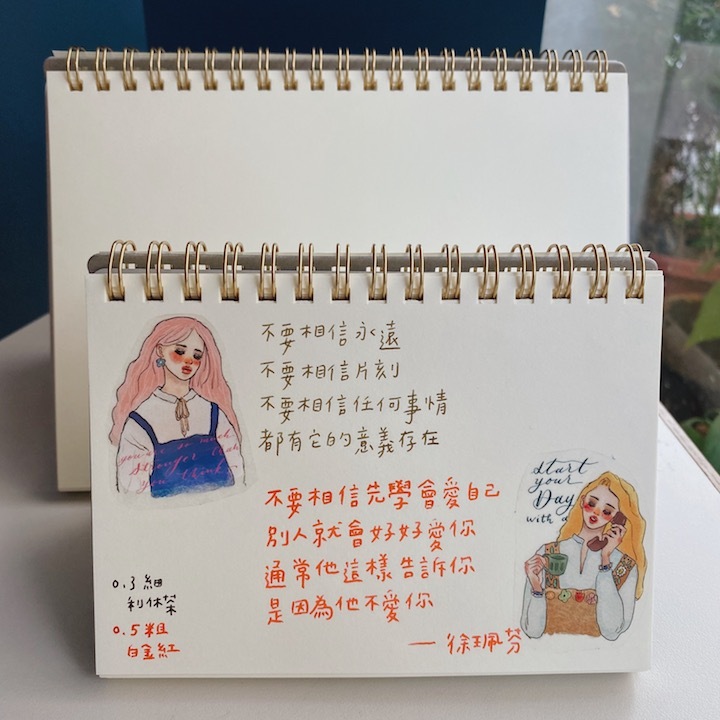 不要相信永遠
不要相信片刻
不要相信任何事情
都有它的意義存在
you are so much
stronger than
you think
不要相信先學會愛自己
別人就會好好愛你
通常他這樣告訴你
是因為他不愛你
— 徐珮芬
start
your
Day
with a
0.3 細
利休茶
0.5 粗
白金紅